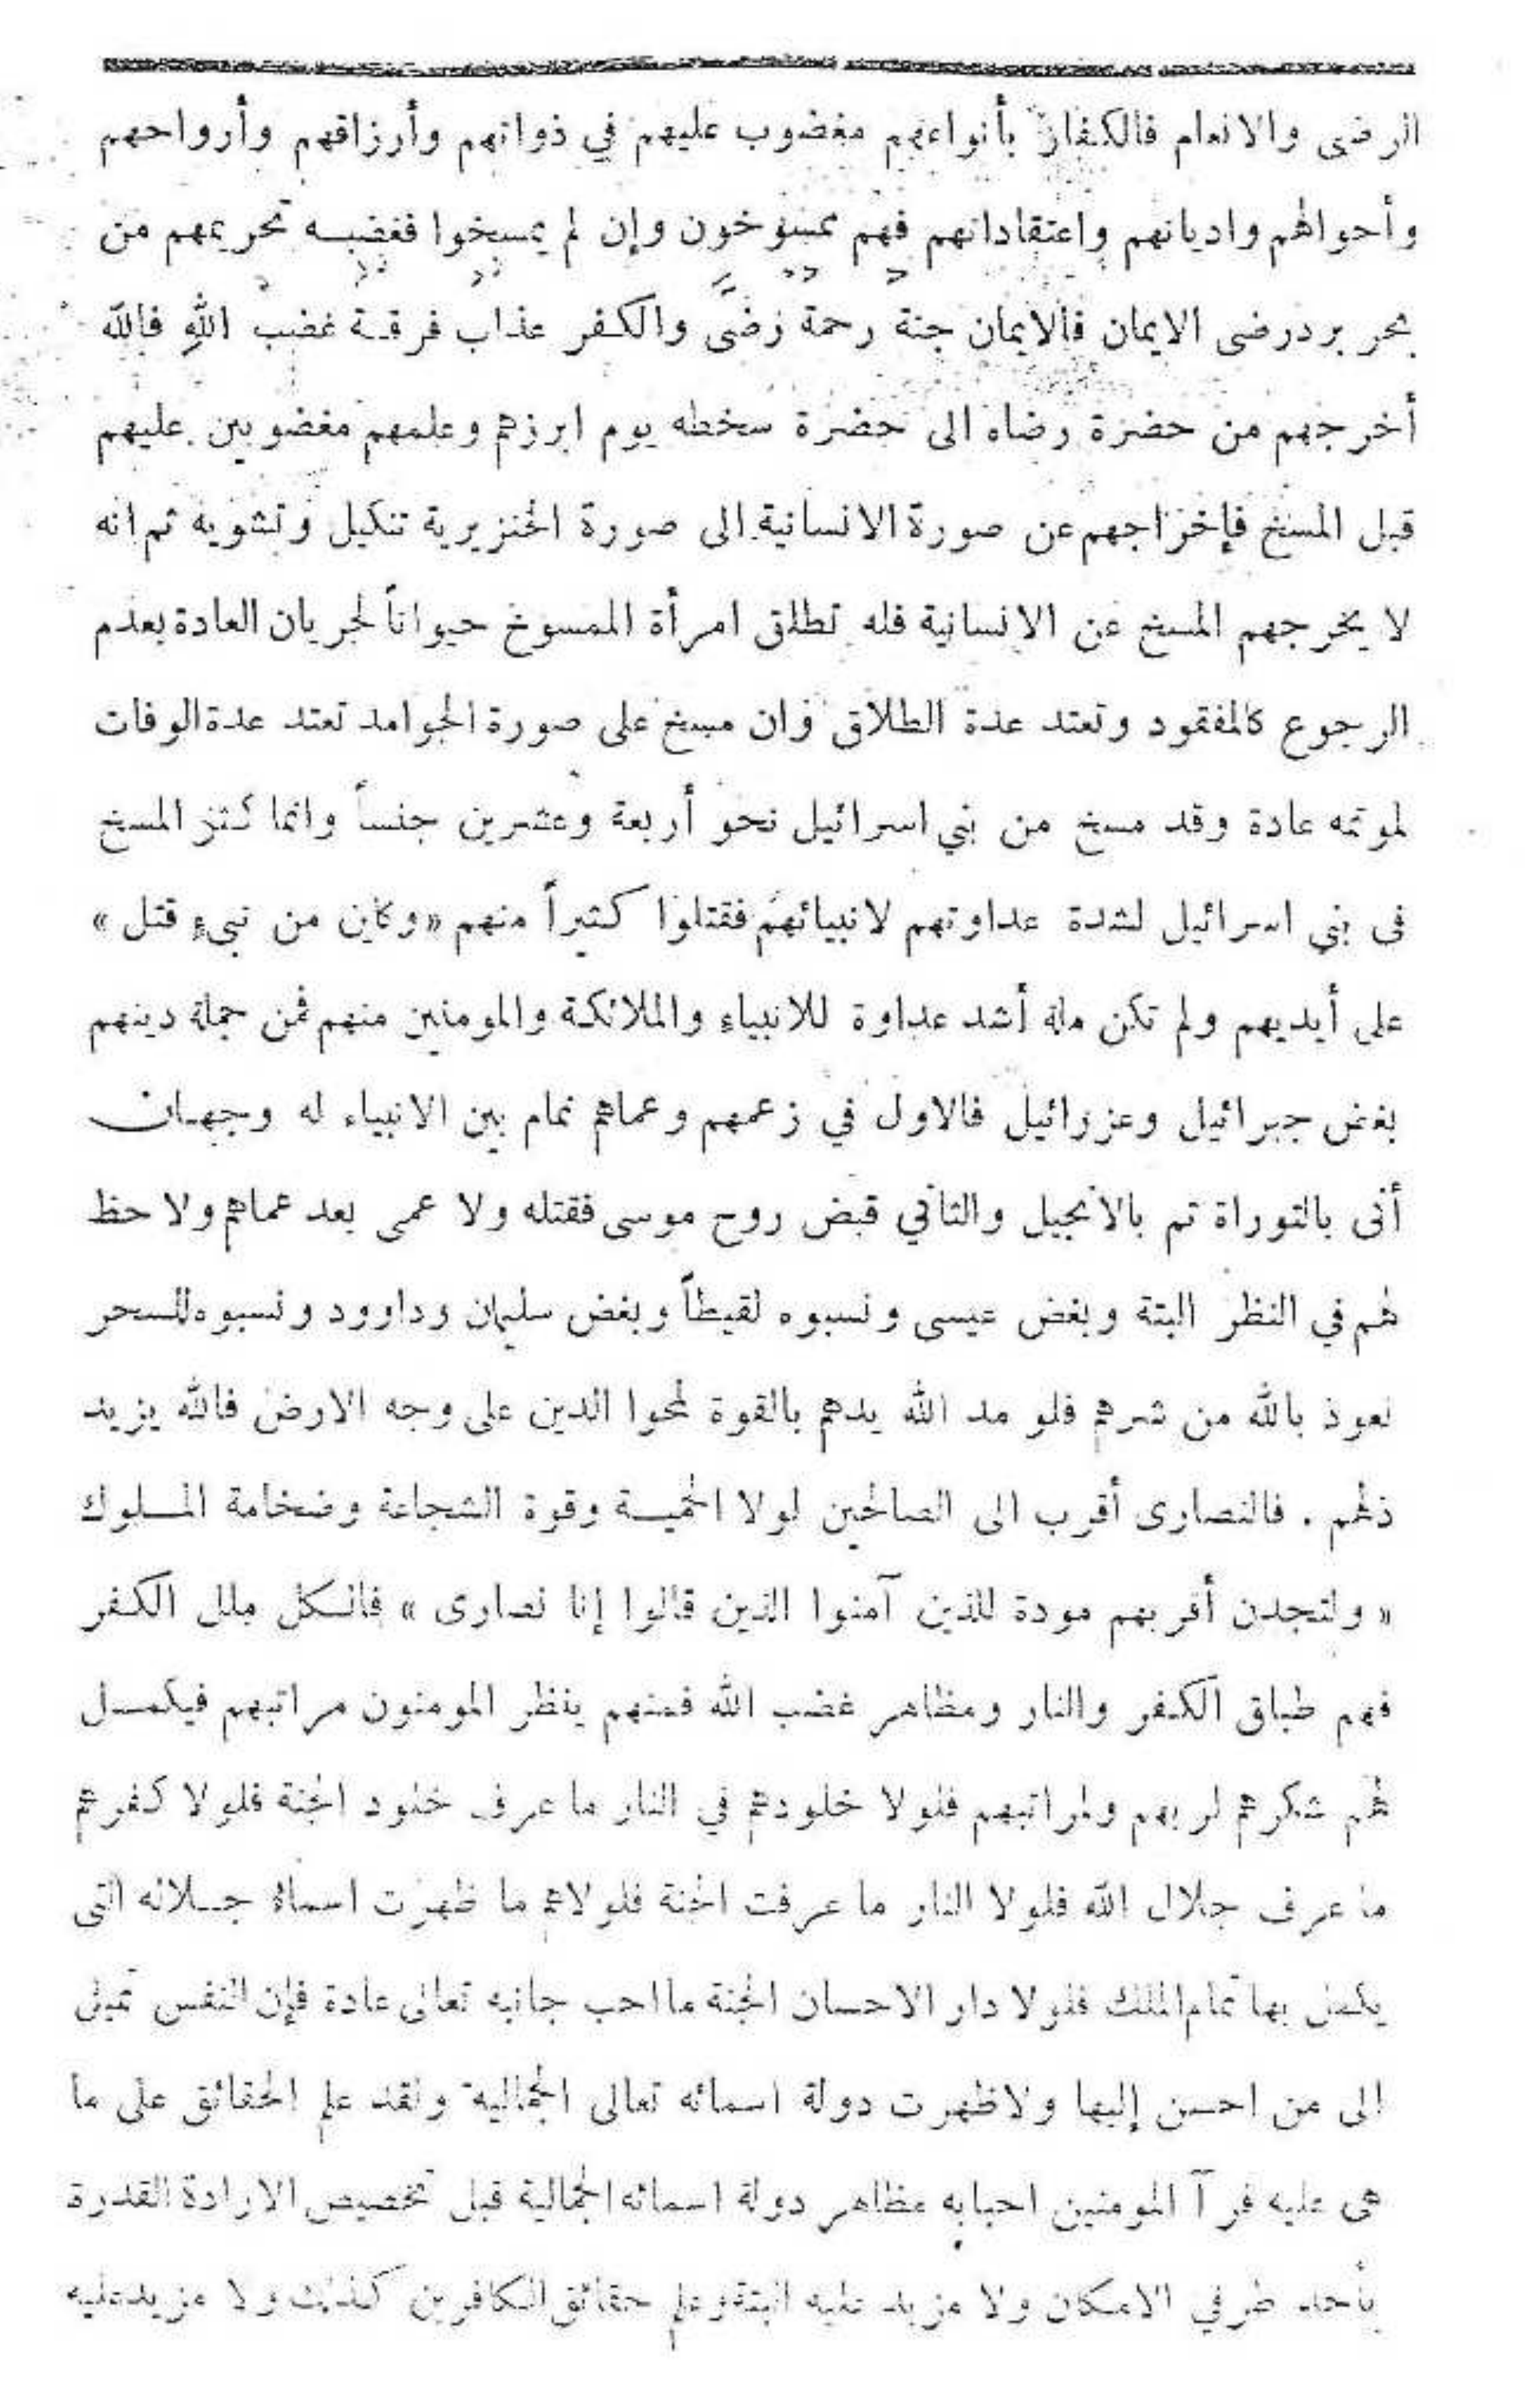 الرضى والانعام فالكفار بأنواعهم مغضوب عليهم في ذواتهم وأرزاقهم وأرواحهم
وأحوالهم واديانهم واعتقاداتهم فهم ممسوخون وإن لم يمسخوا فغضبه تحريمهم من
بحر برد رضى الايمان فالايمان جنة رحمة رضى والكفر عذاب فرقة غضب الله فالله
أخرجهم من حضرة رضاه الى حضرة سخطه يوم ابرزهم وعلمهم مغضوبين عليهم
قبل المسخ فإخراجهم عن صورة الانسانية الى صورة الخنزيرية تنكيل وتشويه ثم انه
لا يخرجهم المسخ عن الانسانية فله تطلق امرأة الممسوخ حيواناً لجريان العادة بعدم
الرجوع كالمفقود وتعتد عدة الطلاق وان مسخ على صورة الجوامد تعتد عدة الوفات
لموته عادة وقد مسخ من بني اسرائيل نحو أربعة وعشرين جنساً وانما كثر المسخ
فى بني اسرائيل لشدة عداوتهم لانبيائهم فقتلوا كثيراً منهم «وكاين من نبيء قتل»
على أيديهم ولم تكن ملة أشد عداوة للانبياء والملائكة والمومنين منهم فمن جملة دينهم
بغض جبرائيل وعزرائيل فالاول في زعمهم وعماهم نمام بين الانبياء له وجهان
أتى بالتوراة ثم بالانجيل والثاني قبض روح موسى فقتله ولا عمى بعد عماهم ولا حظ
لهم في النظر البتة وبغض عيسى ونسبوه لقيطاً وبغض سليمان وداوود ونسبوه للسحر
نعوذ بالله من شرهم فلو مد الله يدهم بالقوة لمحوا الدين على وجه الارض فالله يزيد
ذلهم . فالنصارى أقرب الى الصالحين لولا الحمية وقوة الشجاعة وضخامة الملوك
« ولتجدن أقربهم مودة للذين آمنوا الذين قالوا إنا نصارى » فالكل ملل الكفر
فهم طباق الكفر والنار ومظاهر غضب الله فمنهم ينظر المومنون مراتبهم فيكمل
لهم شكرهم لربهم ولمراتبهم فلولا خلودهم في النار ما عرف خلود الجنة فلولا كفرهم
ما عرف جلال الله فلولا النار ما عرفت الجنة فلولاهم ما ظهرت اسماء جلاله التى
يكمل بها تمام الملك فلولا دار الاحسان الجنة ما احب جانبه تعالى عادة فإن النفس تميل
الى من احسن إليها ولا ظهرت دولة اسمائه تعالى الجمالية ولقد علم الحقائق على ما
هى عليه فرآ المومنين احبابه مظاهر دولة اسمائه الجمالية قبل تخصيص الارادة القدرة
بأحد طرفي الامكان ولا مزيد عليه البتة وعلم حقائق الكافرين كذلك ولا مزيد عليه